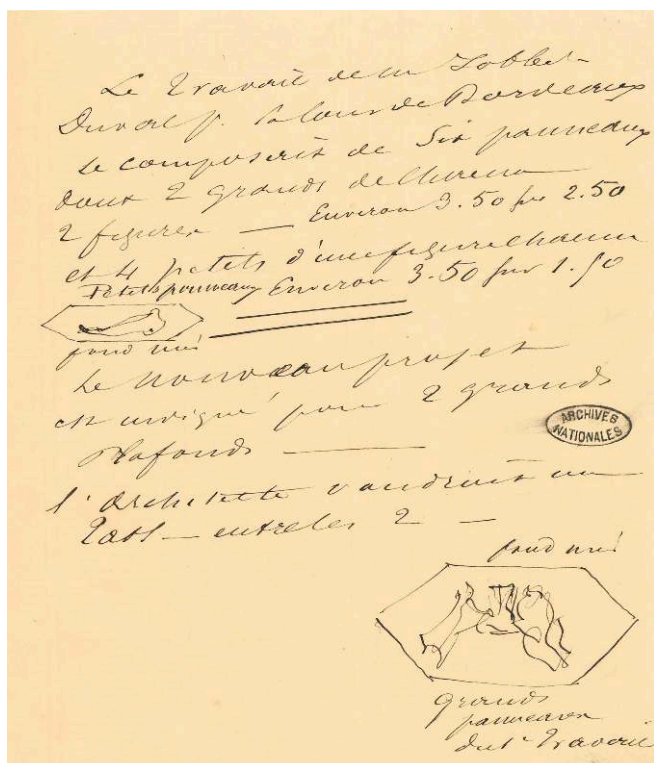 Le Travail de M Joblet-
Duval p. la Cour de Bordeaux
Se composerait de Six panneaux
dont 2 grands de Chacun
2 figures — Environ 3.50 sur 2.50
et 4 petits d'une figure Chacun
Petits panneaux Environ 3.50 sur 1.50
fond uni
Le nouveau projet
est indiqué pour 2 grands
Plafonds —
l'Architecte voudrait un
entre les 2 —
ARCHIVES
NATIONALES
fond uni
Grands
panneaux
du 1r Travail